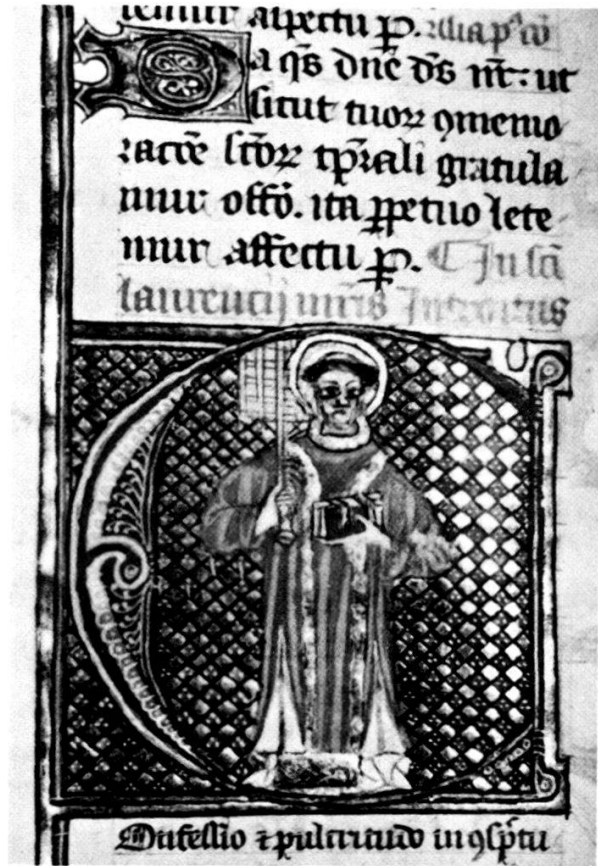 aspectu ꝑ. alia
Da q̄s dn̄e ds̄ nr̄: ut
sicut tuoꝝ ꝯmemo
racōe scōꝝ tp̄rali gratula
mur offō. ita ꝑpetuo lete
mur aspectu ꝑ. ¶ In scī
laurencij mr̄is Introitus
Confessio ⁊ pulcritudo in ꝯspc̄tu